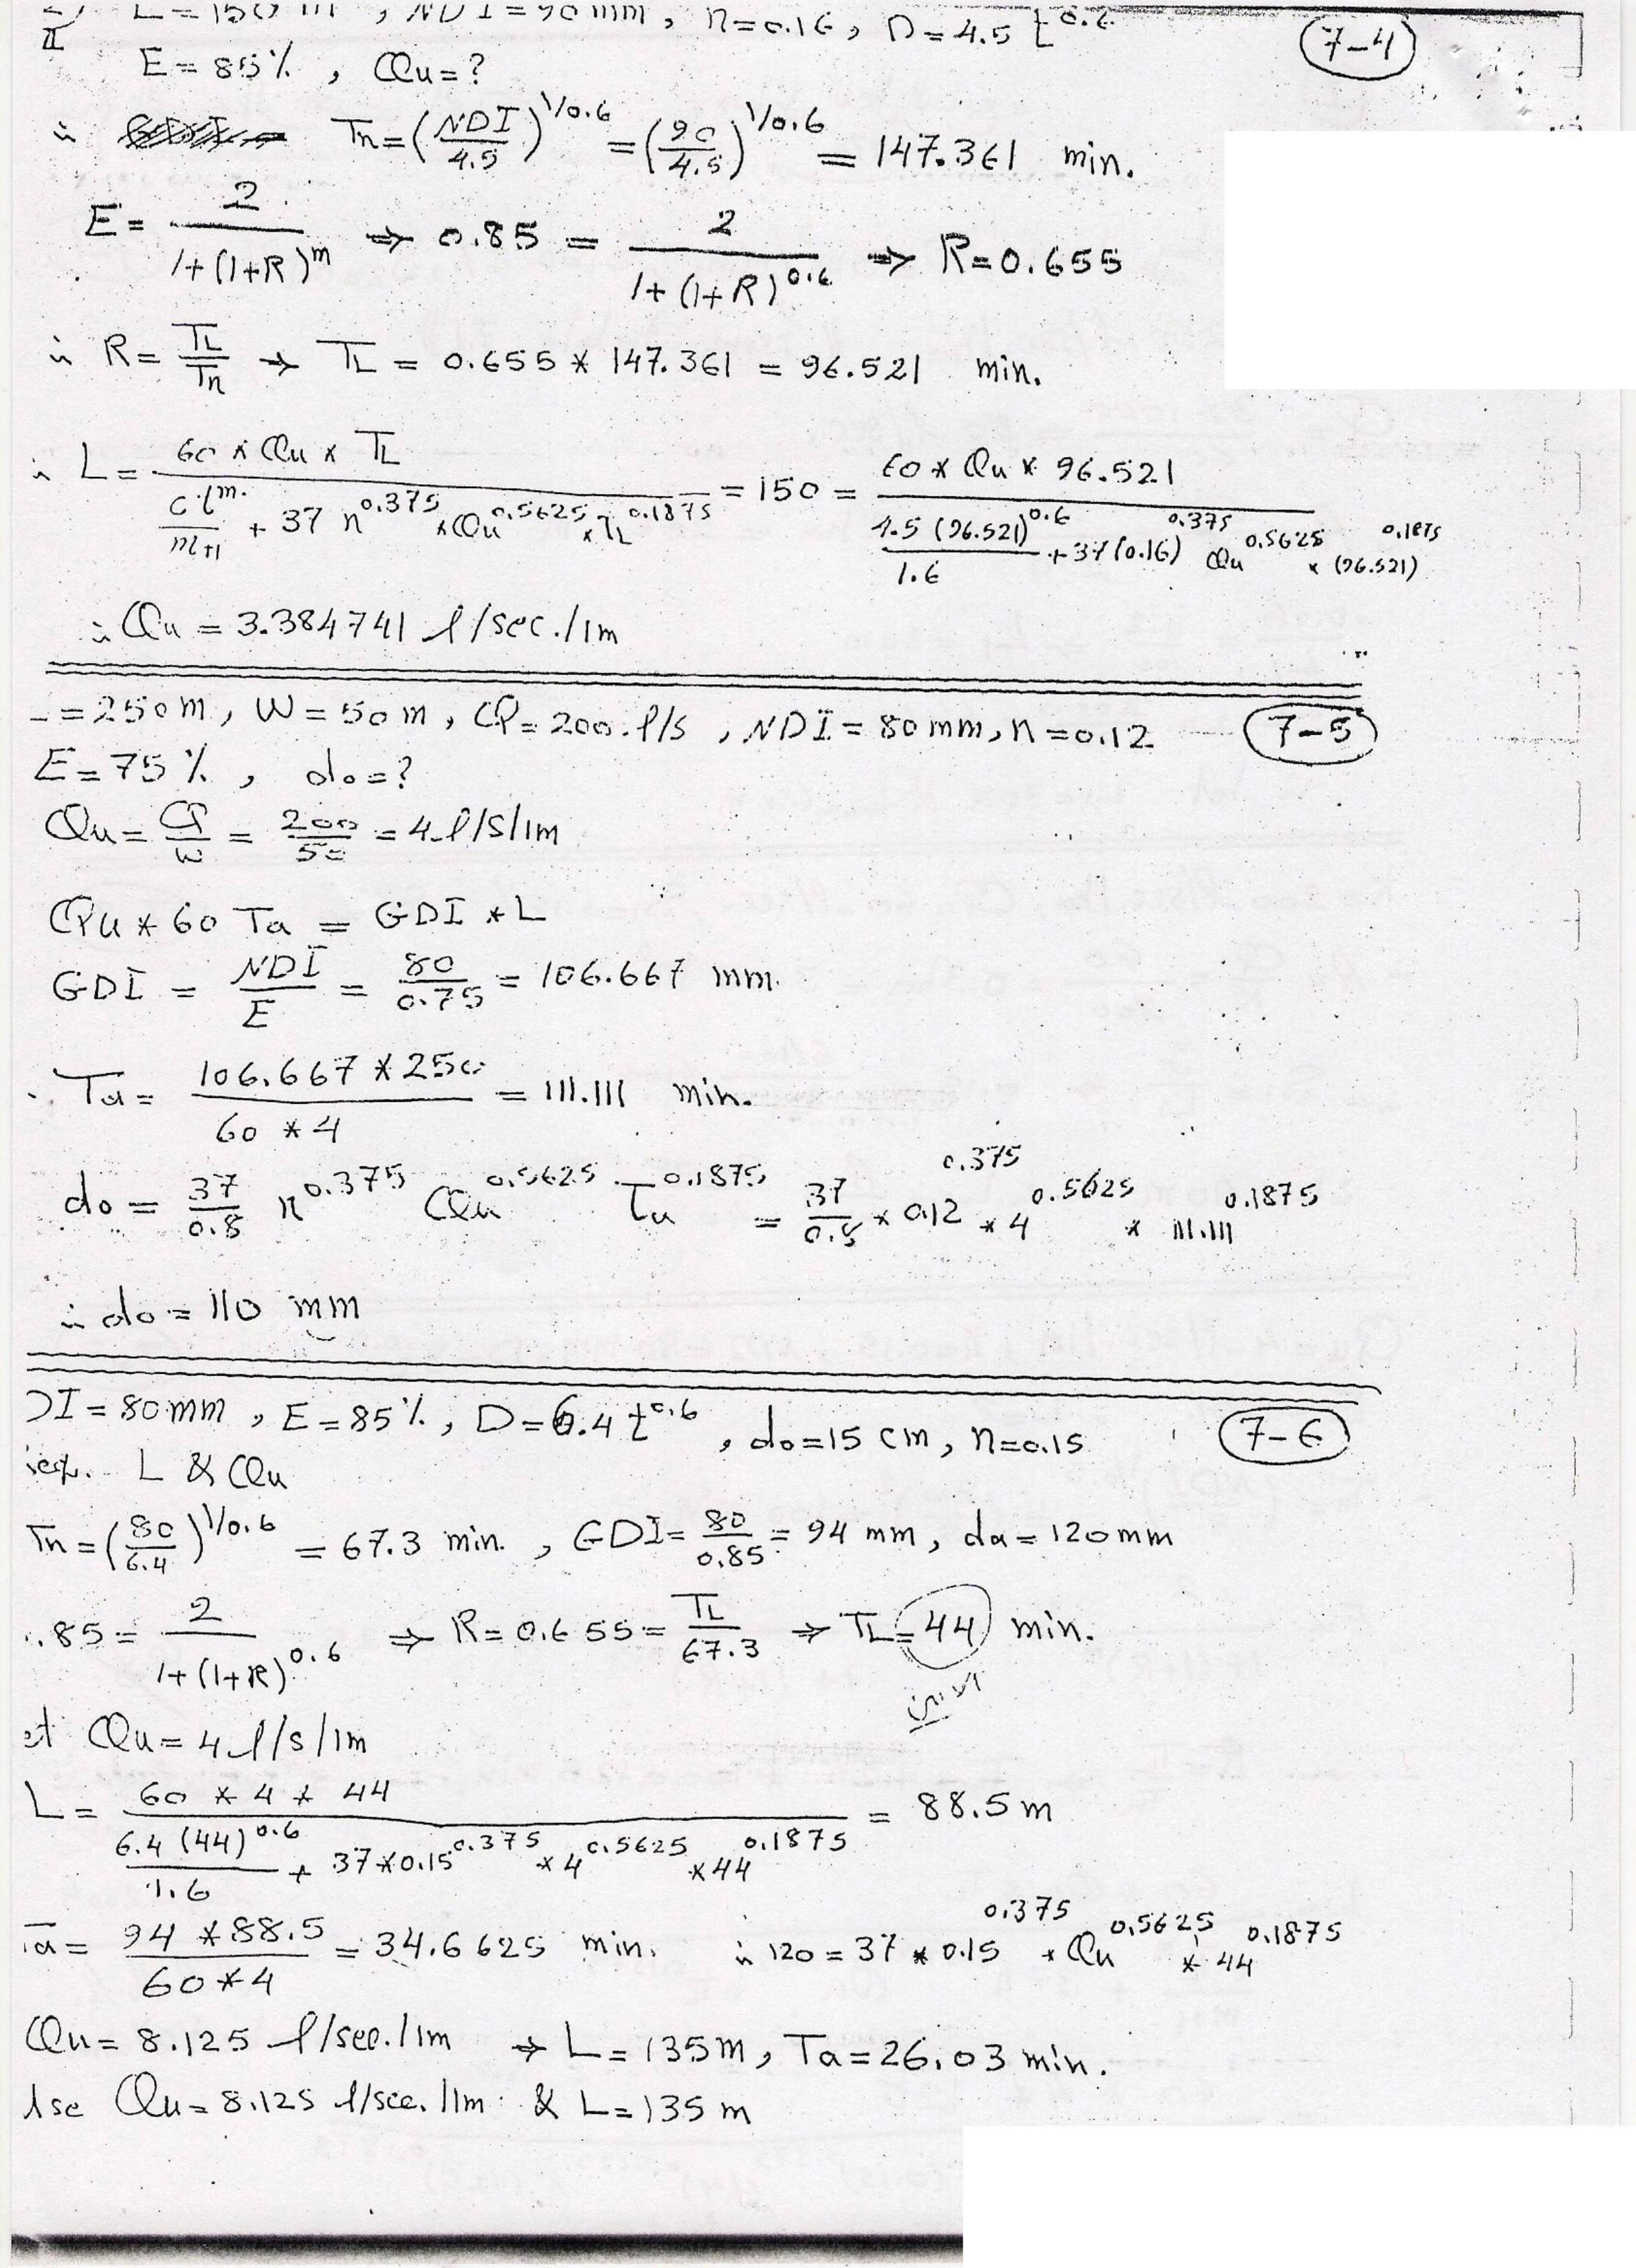 L=150 m, NDI=90mm, n=0.16, D=4.5 t^0.6 (7-4)
E=85%, Qu=?
∴ Tn=(NDI/4.5)^1/0.6 =(90/4.5)^1/0.6 = 147.361 min.
E= 2/(1+(1+R)^m) ⇒ 0.85 = 2/(1+(1+R)^0.6) ⇒ R=0.655
∴ R= TL/Tn → TL = 0.655 * 147.361 = 96.521 min.
∴ L= (60 * Qu * TL)/((c t^m)/(m+1) + 37 n^0.375 *Qu^0.5625 *TL^0.1875) = 150 = (60 * Qu * 96.521)/((4.5 (96.521)^0.6)/1.6 + 37 (0.16)^0.375 Qu^0.5625 * (96.521)^0.1875)
∴ Qu = 3.384741 l/sec./1m
= 250m, W=50m, Q=200. l/s, NDI=80mm, n=0.12 (7-5)
E=75%, do=?
Qu= Q/W = 200/50 = 4 l/s/1m
Qu * 60 Ta = GDI * L
GDI = NDI/E = 80/0.75 = 106.667 mm.
∴ Ta= (106.667 * 250)/(60 * 4) = 111.111 min.
do = 37/0.8 n^0.375 Qu^0.5625 Ta^0.1875 = 37/0.8 * 0.12^0.375 * 4^0.5625 * 111.111^0.1875
∴ do = 110 mm
DI=80mm, E=85%, D=6.4 t^0.6, do=15 cm, n=0.15 (7-6)
req. L & Qu
Tn=(80/6.4)^1/0.6 = 67.3 min., GDI= 80/0.85 = 94 mm, da=120mm
.85= 2/(1+(1+R)^0.6) ⇒ R=0.655= TL/67.3 ⇒ TL=44 min.
et Qu=4 l/s/1m
L= (60 * 4 * 44)/((6.4 (44)^0.6)/1.6 + 37*0.15^0.375 *4^0.5625 *44^0.1875) = 88.5m
Ta= (94 *88.5)/(60*4) = 34.6625 min. ∴ 120=37 * 0.15^0.375 * Qu^0.5625 * 44^0.1875
Qu=8.125 l/sec./1m → L=135m, Ta=26.03 min.
Use Qu=8.125 l/sec./1m & L=135m